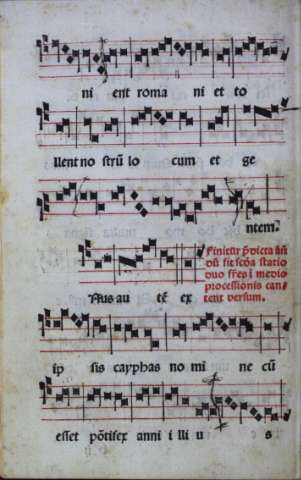 ni ent roma ni et to
llent no strũ lo cum et ge
ntem.
Finitur p̃dicta añ
dũ fit scďa statio
duo fr̃es ĩ medio
processionis can
tent versum.
Nus au tẽ ex
ip sis cayphas no mi ne cũ
esset põtifex anni i lli u s